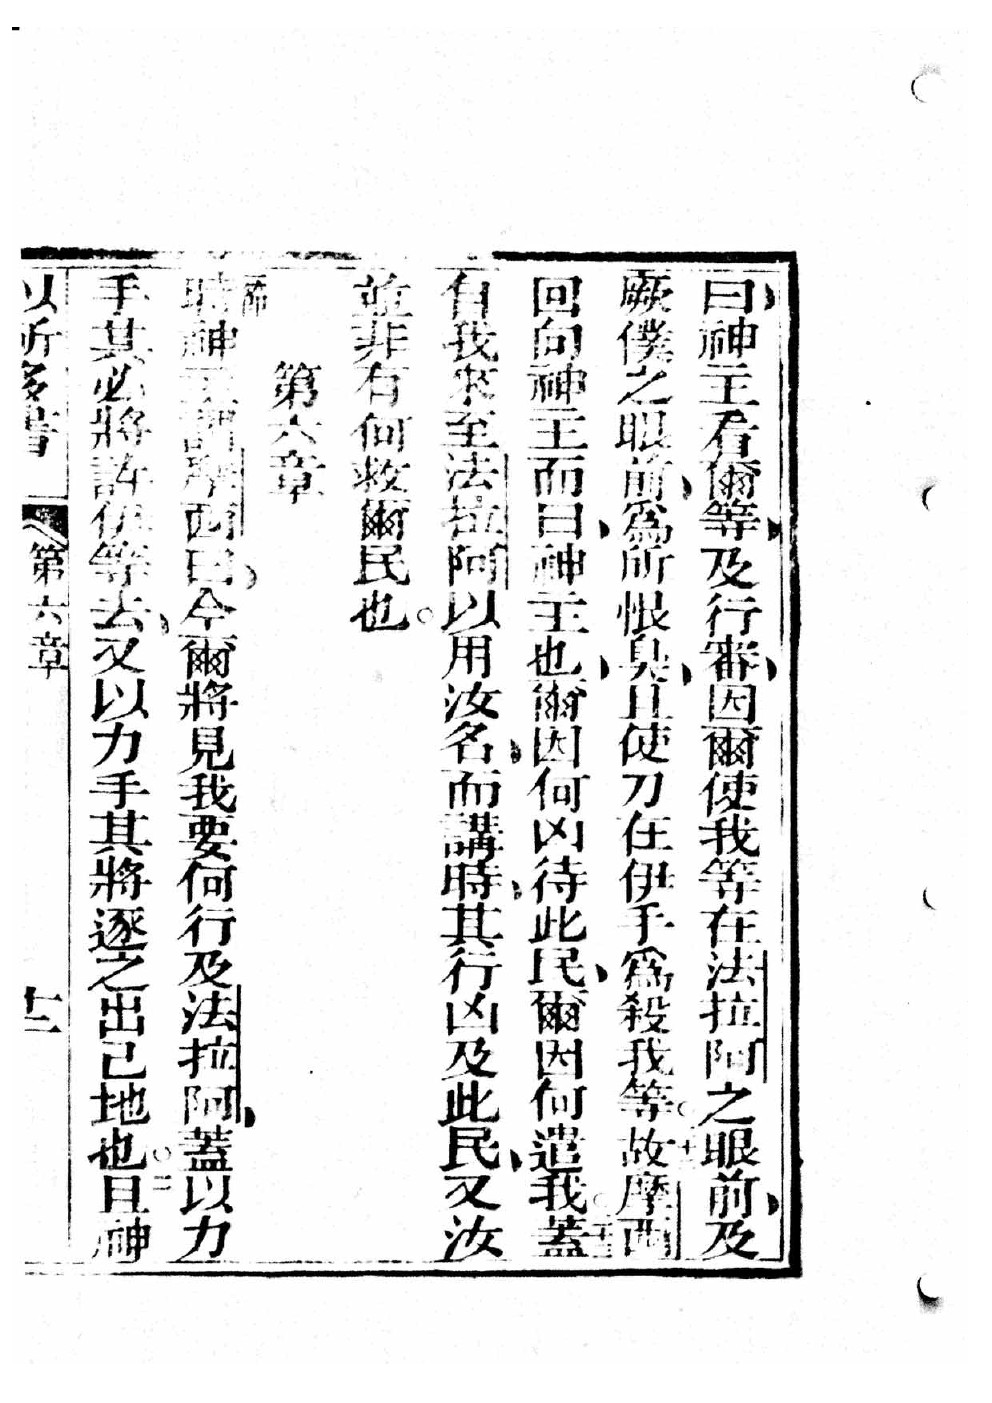 曰神主看爾等及行審因爾使我等在法拉阿之眼前及
厥僕之眼前爲所恨臭且使刀在伊手爲殺我等。故摩西
回向神主而曰神主也爾因何凶待此民爾因何遣我。蓋
自我來至法拉阿以用汝名而講時其行凶及此民又汝
並非有何救爾民也。
第六章
時神主謂摩西曰今爾將見我要何行及法拉阿蓋以力
手其必將許伊等去又以力手其將逐之出己地也。二且神
以所多書
第六章
十二